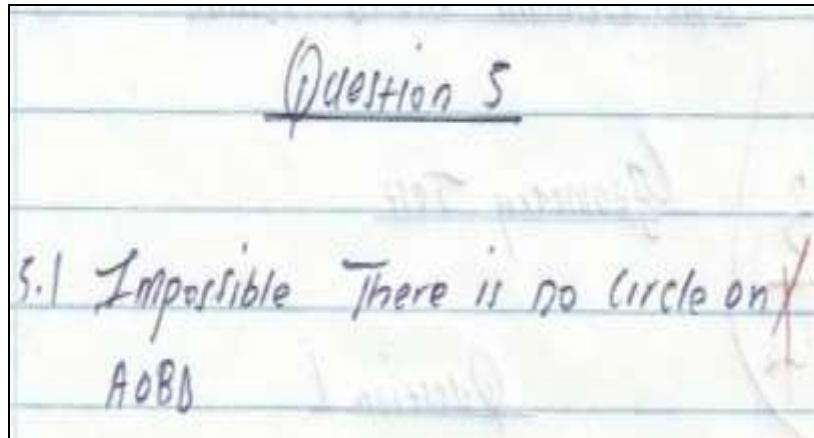 Question 5
5.1 Impossible There is no circle on
AOBD